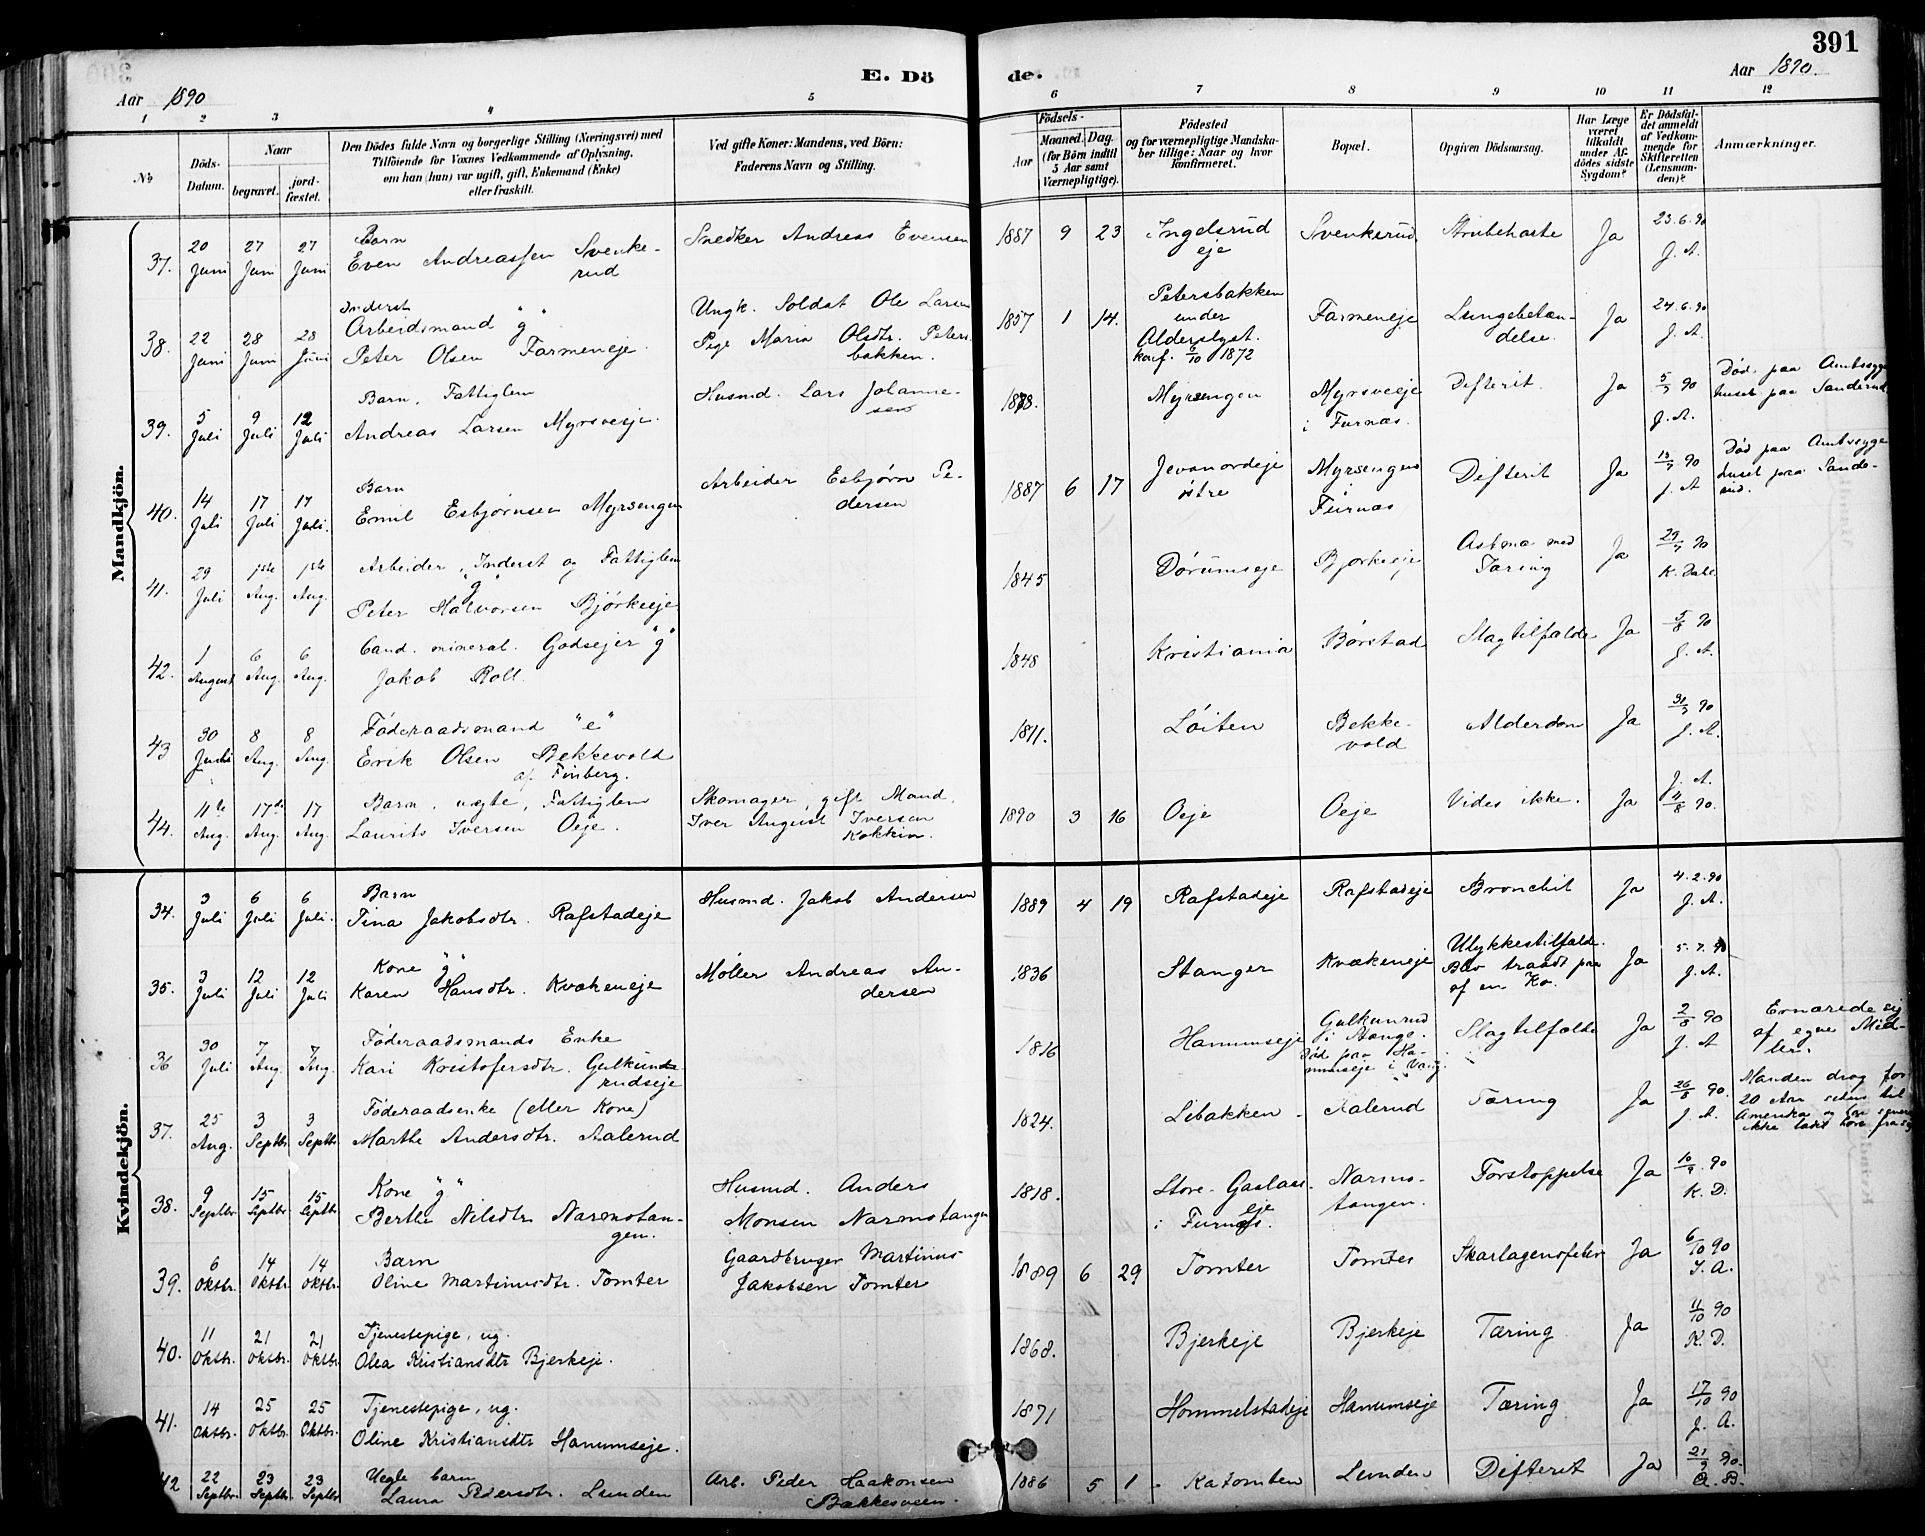 391
E. Dö de.
Aar 1890
Aar 1890.
1 2 3 4 5 6 7 8 9 10 11 12
No
Döds-Datum.
Naar
begravet.
jord-fæstet.
Den Dödes fulde Navn og borgerlige Stilling (Næringsvei) med
Tilföiende for Voxnes Vedkommende af Oplysning,
om han (hun) var ugift, gift, Enkemand (Enke)
eller fraskilt.
Ved gifte Koner: Mandens, ved Börn:
Faderens Navn og Stilling.
Födsels-
Aar Maaned. Dag.
(for Börn indtil
5 Aar samt
Værnepligtige).
Födested
og for værnepligtige Mandska-
ber tillige: Naar og hvor
konfirmeret.
Bopæl.
Opgiven Dödsaarsag.
Har Læge
været
tilkaldt
under Af-
dödes sidste
Sygdom?
Er Dödsfal-
det anmeldt
af Vedkom-
mende for
Skifteretten
(Lensman-
den)?
Anmærkninger.
Mandkjön.
37. 20 Juni 27 Juni 27 Juni Barn
Even Andreassen Svenke-
rud
Snedker Andreas Evensen
1887 9 23 Ingelsrud
eje
Svenkerud Strubehoste Ja 23.6.90
J. A.
38. 22 Juni 28 Juni 28 Juni Inderst
Arbeidsmand "g"
Peter Olsen Farmeneje.
Ungk. Soldat Ole Larsen
Pige Maria Olsdtr. Peters
bakken.
1857 1 14. Petersbakken
under
Alderslyst.
konf. 6/10 1872
Farmeneje Lungebetæn-
delse. Ja 24.6.90
J. A.
39. 5 Juli 9 Juli 12 Juli Barn, Fattiglem
Andreas Larsen Myrsveje.
Husmd. Lars Johanne-
sen
1878. Myrsengen Myrsveeje
i Furnæs. Defterit. Ja 5/7 90
J. A.
Död paa Amtssyge
huset paa Sanderud
40. 14 Juli 17 Juli 17 Juli. Barn
Emil Esbjørnsen Myrsengen
Arbeider Esbjørn Pe-
dersen
1887 6 17 Jevanordeje
östre
Myrsengen
i Furnæs Defterit Ja 15/7 90
J. A
Död paa Amtssyge
huset paa Sande-
rud.
41. 29 Juli 1ste Aug. 1ste Aug. Arbeider, Inderst og Fattiglem
"g"
Peter Halvorsen Bjørkeeje
1845 Dörumseje Bjørkeeje Astma med
Tæring Ja 29/7 90
K. Dahl
42. 1 August 6 Aug. 6 Aug. Cand. mineral. Godsejer "g"
Jakob Roll.
1848 Kristiania Börstad Slagtilfælde Ja 5/8 90
J. A.
43 30 Juli 8 Aug. 8 Aug. Föderaadsmand "e"
Erik Olsen Bekkevold
af Finberg.
1811. Löiten Bekke-
vold Alderdom Ja 31/7 90
J. A.
44. 11te Aug. 17de Aug. 17 Aug. Barn, uægte, Fattiglem
Laurits Iversen Oeje.
Skomager, gift Mand,
Iver August Iversen
Kokkin.
1890 3 16 Oeje Oeje Vides ikke. Ja J. A.
11/8 90.
Kvindekjön.
34. 3 Juli 6 Juli 6 Juli. Barn
Tina Jakobsdtr. Rafstadeje
Husmd. Jakob Andersen
1889 4 19 Rafstadeje Rafstadeje Bronchit Ja 4.2.90
J. A.
35. 3 Juli 12 Juli 12 Juli Kone "g"
Karen Hansdtr. Kvækeneje
Möller Andreas An-
dersen
1836 Stanger Kvækeneje Ulykkestilfælde.
Blev traadt paa
af en Ko. Ja 5.7.90
J. A.
36 30 Juli 7 Aug. 7 Aug. Föderaadsmands Enke
Kari Kristofersdtr. Gulkund-
rudseje
1816 Hanumseje Gulkunrud
i Stange.
Död paa Ha-
numseje i Vang. Slagtilfælde Ja 2/8 90
J. A
Ernærede sig
af egne Mid-
ler.
37. 25 Aug. 3 Septbr. 3 Septbr. Föderaadsenke (eller Kone)
Marthe Andersdtr. Aalerud
1824. Libakken Aalerud Tæring Ja 26/8 90.
J. A.
Manden drog for
20 Aar siden til
Amerika og har senere
ikke ladet höre fra sig
38. 9 Septbr. 15 Septbr. 15 Septbr. Kone "g"
Berthe Nilsdtr. Narmotan-
gen.
Husmd. Anders
Monsen Narmotangen
1818. Store-Gaslaas
eje
i Furnæs. Narmo-
tangen. Forstoppelse Ja 10/9 90
K. D.
39. 6 Oktbr. 14 Oktbr. 14 Oktbr. Barn
Oline Martinusdtr. Tomter
Gaardbruger Martinus
Jakobsen Tomter
1889 6 29 Tomter Tomter Skarlagensfeber Ja 6/10 90
J. A.
40. 11 Oktbr. 21 Oktbr. 21 Oktbr. Tjenestepige, ug.
Olea Kristiansdtr Bjerkeje.
1868. Bjerkeje Bjerkeje Tæring Ja 11/10 90
K. D.
41. 14 Oktbr. 25 Oktbr. 25 Oktbr. Tjenestepige, ug.
Oline Kristiansdtr Hanumseje.
1871 Hommelstadeje Hanumseje Tæring Ja 17/10 90
J. A.
42 22 Septbr. 23 Septbr. 23 Septbr Uegte barn
Laura Pedersdtr. Lunden
Arb. Peder Haakonsen
Bakkesveen.
1886 5 1 Katomten Lunden Difterit Ja 21/9 90.